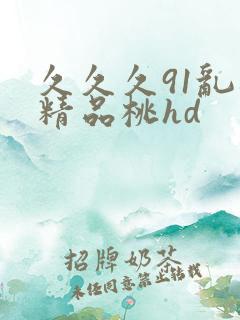 久久久91亂
精品桃hd
招牌奶茶
未经同意禁止转载